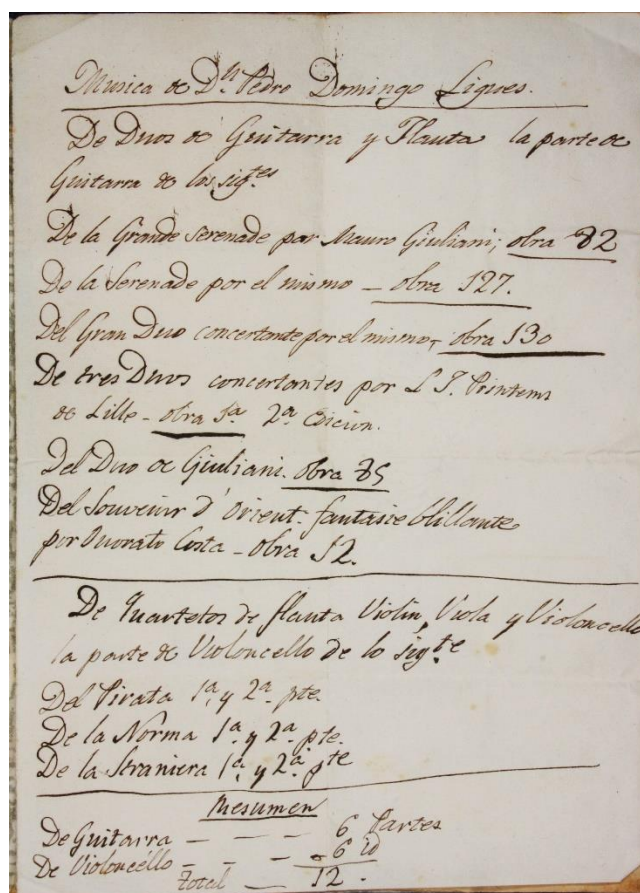 Musica de Dn. Pedro Domingo Ligues.
De Duos de Guitarra y Flauta la parte de
Guitarra de los sigtes
De la Grande Serenade por Mauro Giuliani; obra 82
De la Serenade por el mismo - obra 127.
Del Gran Duo concertante por el mismo, obra 130
De tres Duos concertantes por L. J. Printems
de Lille - obra 1a. 2a. Edicion.
Del Duo de Giuliani. obra 85
Del Souvenir d'Orient. fantasie blillante
por Onorato Costa - obra 12.
De Quartetos de flauta Violin, Viola y Violoncello
la parte de Violoncello de lo sigte
Del Pirata 1a. y 2a. pte.
De la Norma 1a. y 2a. pte.
De la Straniera 1a. y 2a. pte
Resumen
De Guitarra - - - 6 Partes
De Violoncello - - - 6 id
Total - 12.